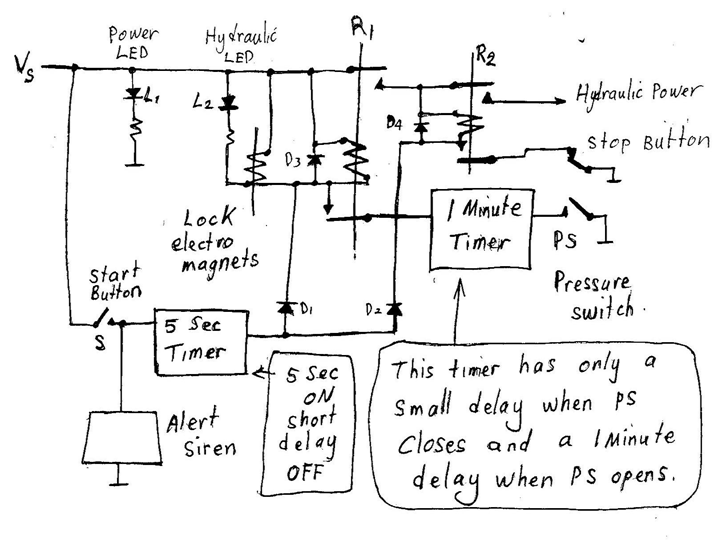 Power
LED
Hydraulic
LED
R1
R2
Vs
L1
L2
D3
D4
Hydraulic Power
Stop Button
Lock
electro
magnets
1 Minute
Timer
PS
Pressure
switch.
Start
Button
S
5 Sec
Timer
D1
D2
Alert
Siren
5 Sec
ON
short
delay
OFF
This timer has only a
small delay when PS
closes and a 1 Minute
delay when PS opens.